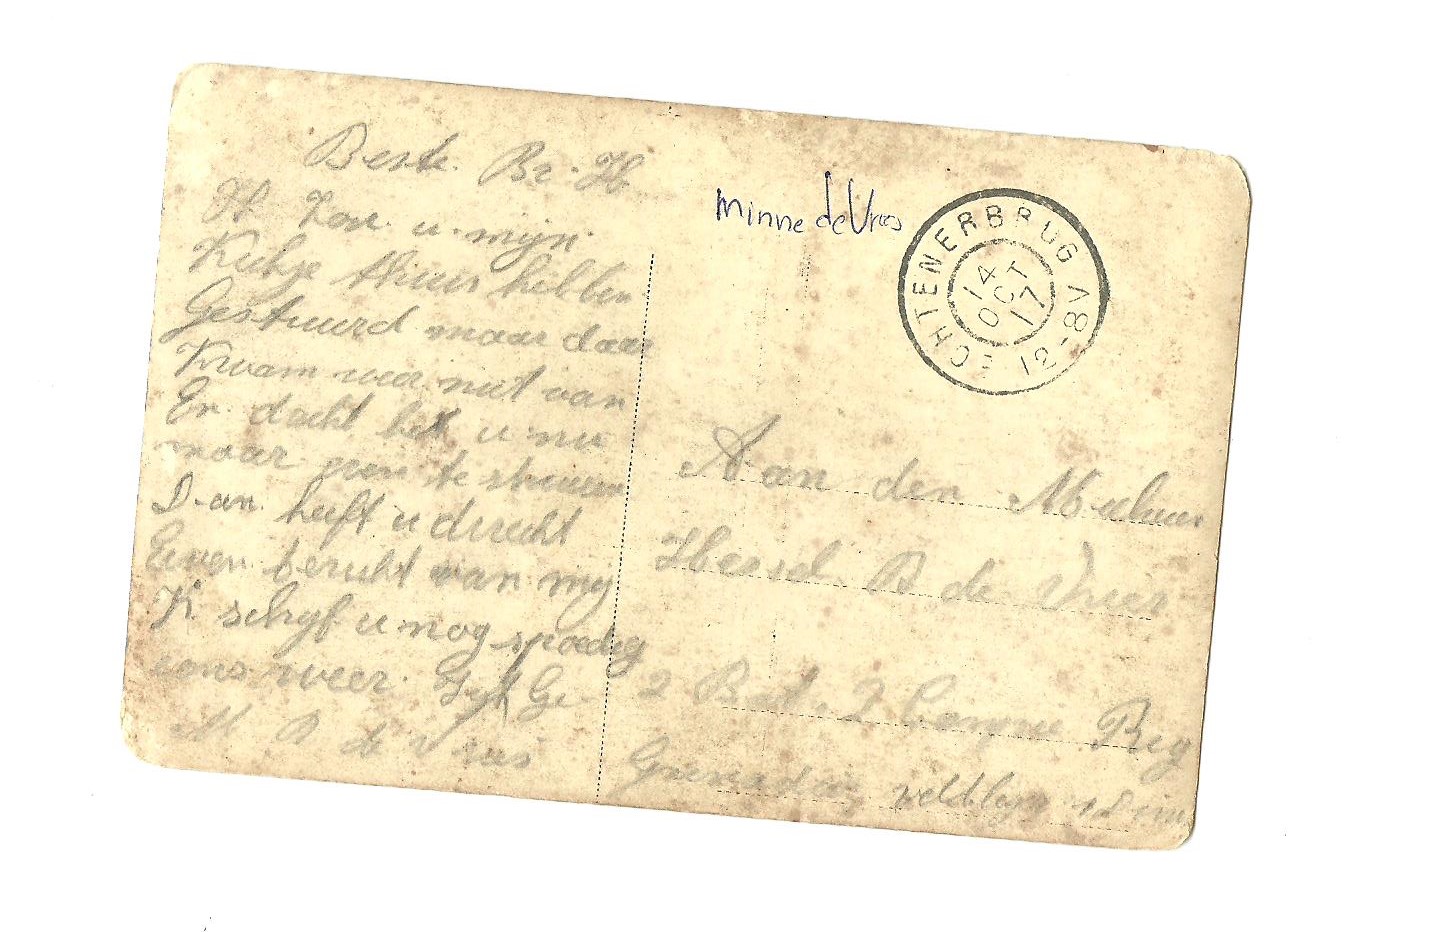 Beste Br. H
Ik Zou u mijn
Kiekje thuis hebben
Gestuurd maar daar
Kwam wer niet van
En dacht het u nu
maar van te sturen
Dan heeft u direcht
Even berucht van my
K schyf u nog spoedig
eens weer Gyt Ge-
M B de Vries
minne de Vries
ECHTENERBRUG
14
OCT
17
12-8V
Aan den
Hessel B de Vries
2 Bat. 2 Compie Reg
Grenadiers